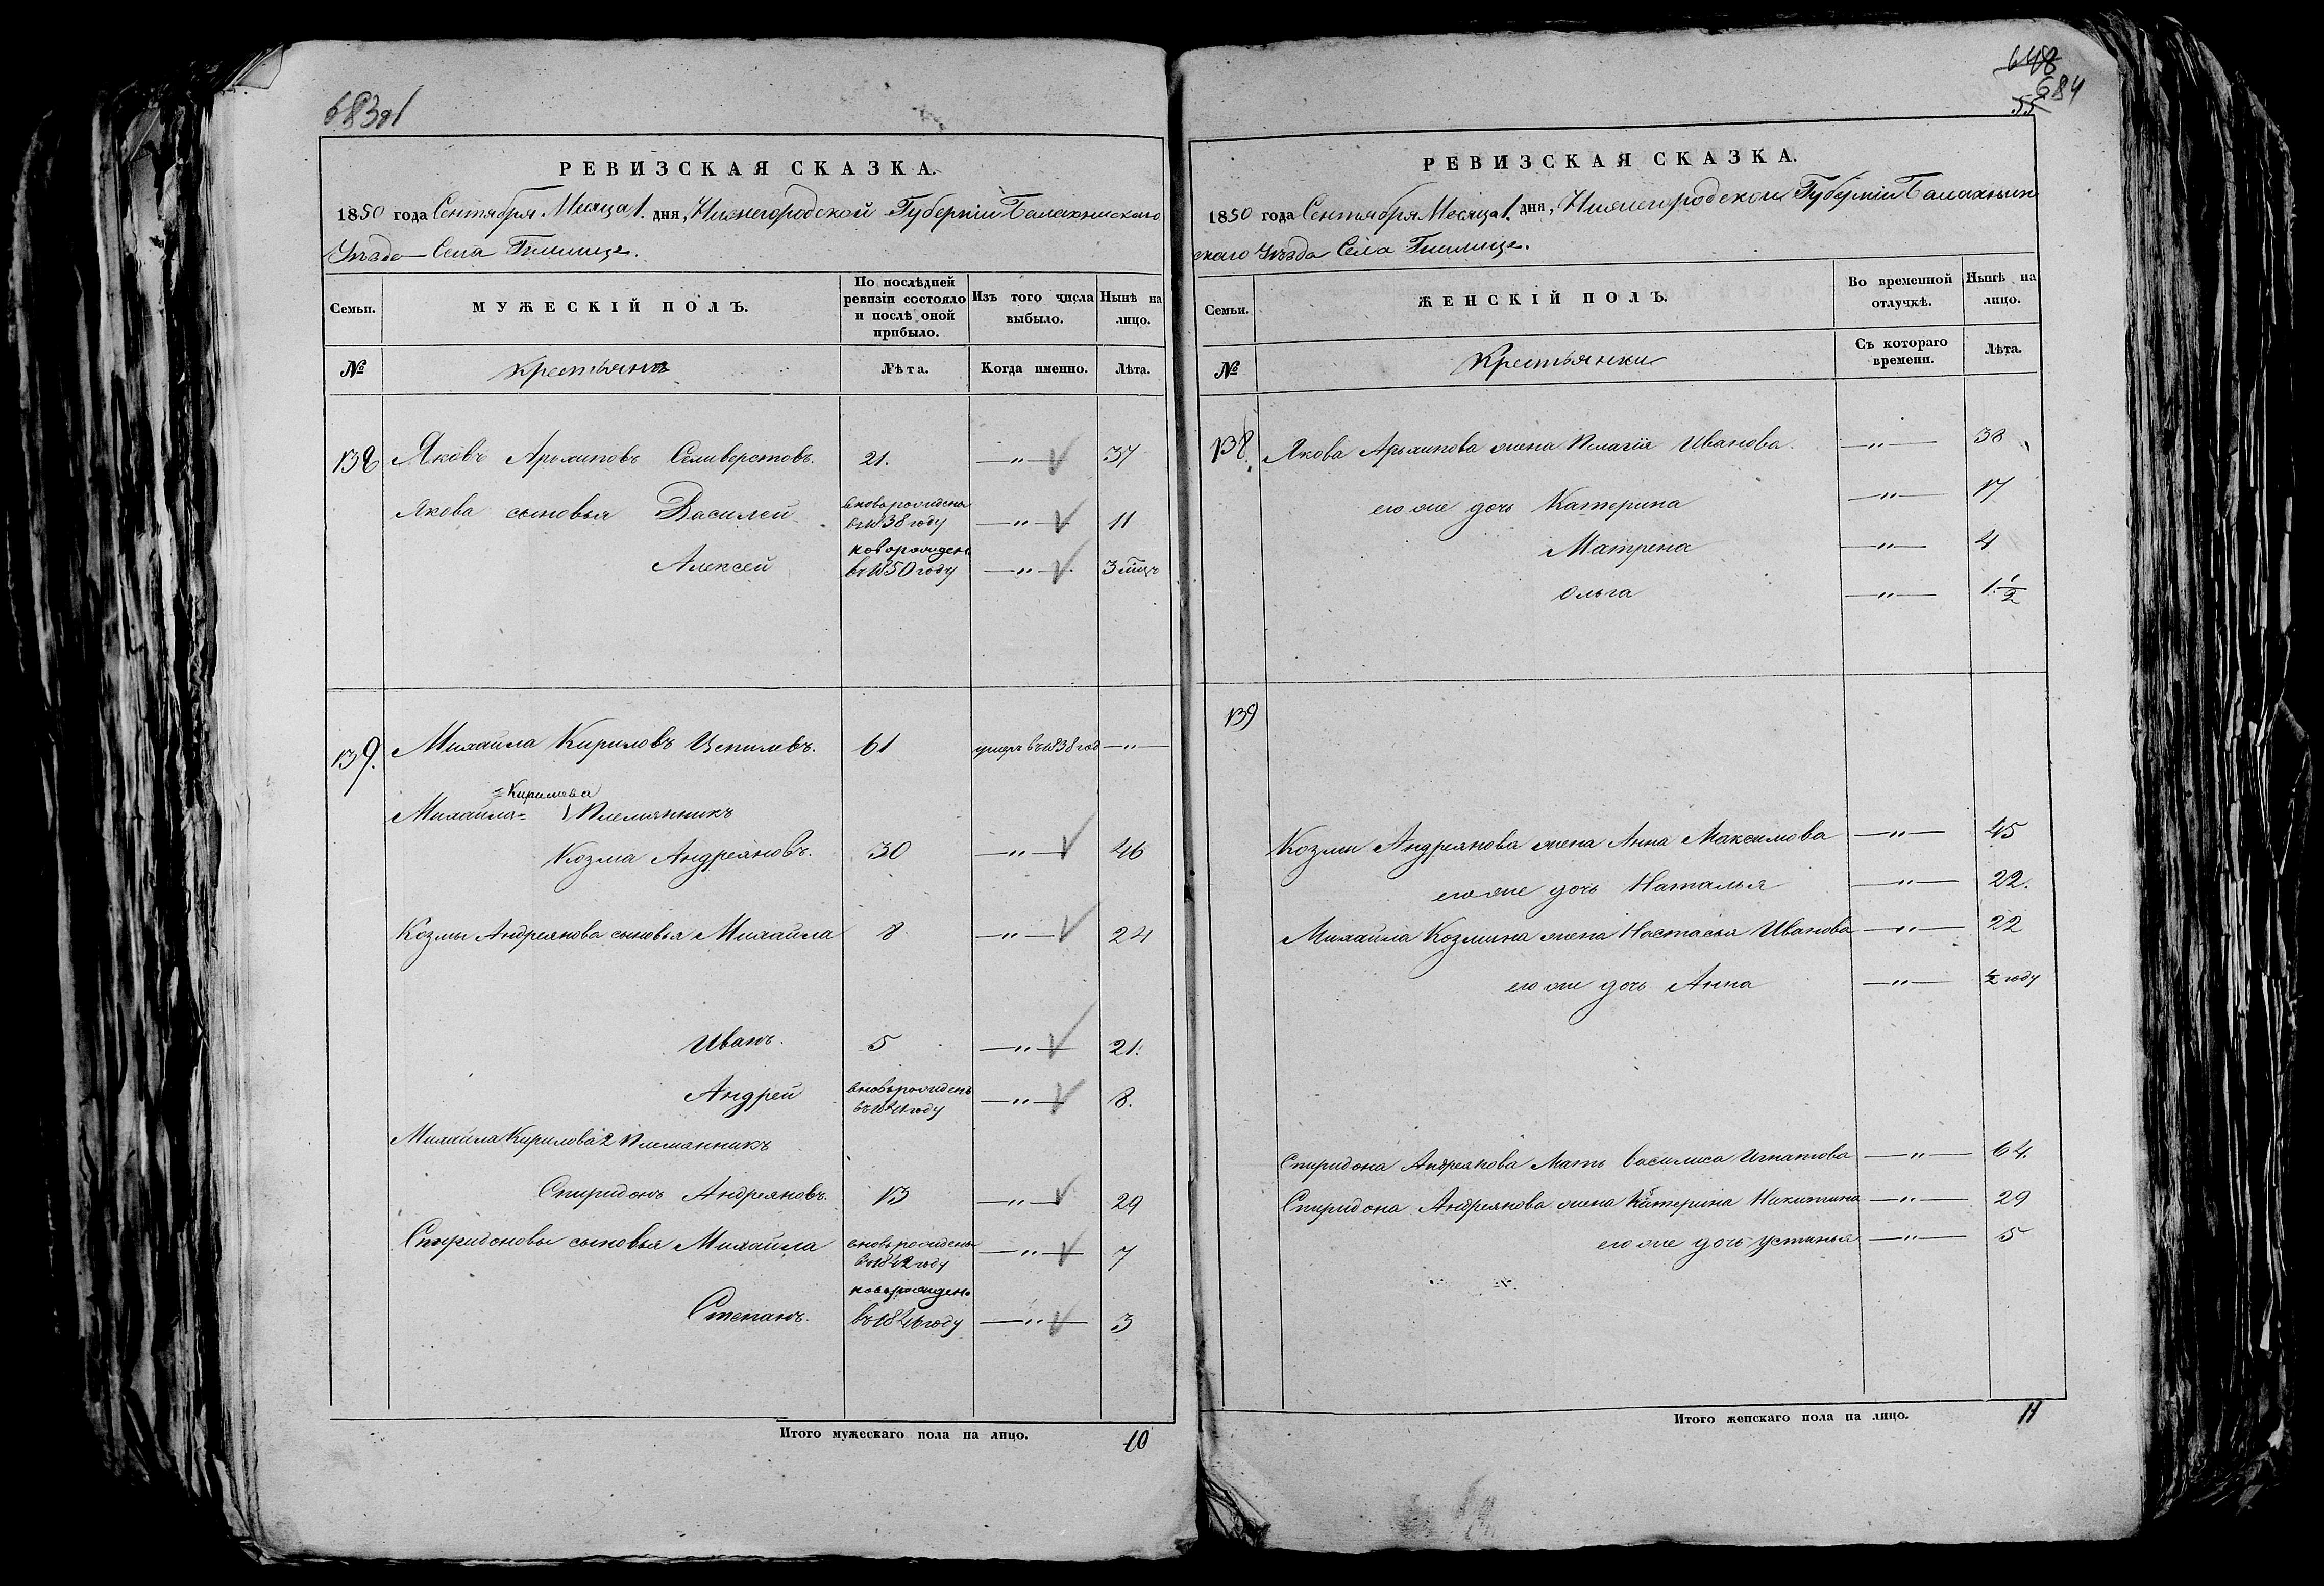 683об
РЕВИЗСКАЯ СКАЗКА.
1850 года Сентября Месяца 1. дня, Нижегородской Губернiи Балахнинскаго
Уезда Села Гнилице.
Семьи. МУЖЕСКІЙ ПОЛЪ. По послѣдней ревизіи состояло и послѣ оной прибыло. Изъ того числа выбыло. Нынѣ на лицо.
№ Крестьяне Лѣта. Когда именно. Лѣта.
138 Яковъ Архиповъ Селиверстовъ. 21. —"— 37
Якова сыновья Василей вновьрожденъ —"— 11
въ 1838 году
Алексей новорожденъ —"— 3 мцъ
въ 1850 году
139. Михайла Кириловъ Цепилевъ. 61 умеръ въ 1838 год —"—
Кирилова
Михайла Племянникъ
Козма Андреяновъ. 30 —"— 46
Козмы Андреянова сыновья Михайла 8 —"— 24
Иванъ. 5 —"— 21.
Андрей вновьрожденъ —"— 8.
въ 1841 году
Михайла Кирилова 2 Племянникъ
Спиридонъ Андреяновъ. 13 —"— 29
Спиридоновы сыновья Михайла вновьрожденъ —"— 7
въ 1842 году
Степанъ. новорожденъ —"— 3
въ 1846 году
Итого мужескаго пола на лицо. 10
648
684
55
РЕВИЗСКАЯ СКАЗКА.
1850 года Сентября Месяца 1. дня, Нижегородской Губернiи Балахнин
скаго Уезда Села Гнилице.
Семьи. ЖЕНСКІЙ ПОЛЪ. Во временной отлучкѣ. Нынѣ на лицо.
№ Крестьянки Съ котораго времени. Лѣта.
138. Якова Архипова жена Пелагiя Иванова. —"— 38
его же дочь Катерина —"— 17
Матрена —"— 4
Ольга —"— 1 1/2
139
Козмы Андреянова жена Анна Максимова —"— 45
его же дочь Наталья —"— 22.
Михайла Козмина жена Настасья Иванова —"— 22
его же дочь Анна —"— 1/2 году
Спиридона Андреянова Мать Василиса Игнатова —"— 64.
Спиридона Андреянова жена Катерина Никитина —"— 29
его же дочь Устинья —"— 5
Итого женскаго пола на лицо. 11